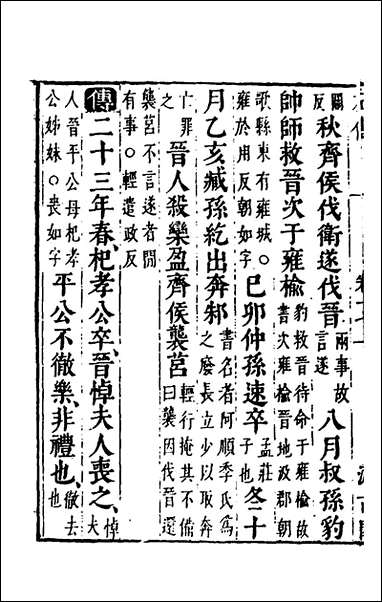 反秋齊侯伐衛遂伐晉兩事故言遂八月叔孫豹
帥師救晉次于雍榆豹救晉待命于雍榆故書次雍榆晉地汲郡朝
歌縣東有雍城○雍於用反朝如字己卯仲孫速卒孟莊子也冬十
月乙亥臧孫紇出奔邾書名者阿順季氏為之廢長立少以取奔
亡罪之晉人殺欒盈齊侯襲莒輕行掩其不備曰襲因伐晉還
襲莒不言遂者閒有事○輕遣政反
傳二十三年春、杞孝公卒、晉悼夫人喪之、悼夫
人晉平公母杞孝公姊妹○喪如字平公不徹樂、非禮也、徹去也